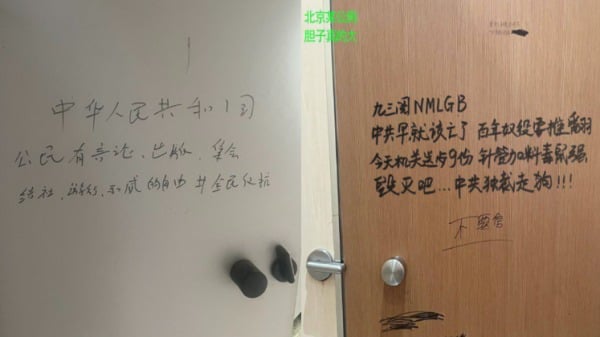 中华人民共和国
公民有言论、出版、集会
结社、游行、示威的自由 并全民反抗
北京 公厕
胆子真的大
九三阅NMLGB
中共早就该亡了 百年奴役要推翻
今天机关送 9份 针管加料毒
毁灭吧...中共独裁走狗!!!